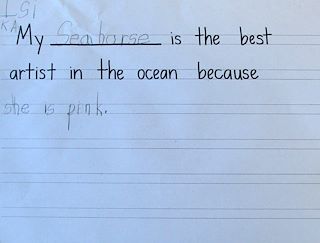 LSI
KA
My Seahorse is the best
artist in the ocean because
she is pink.